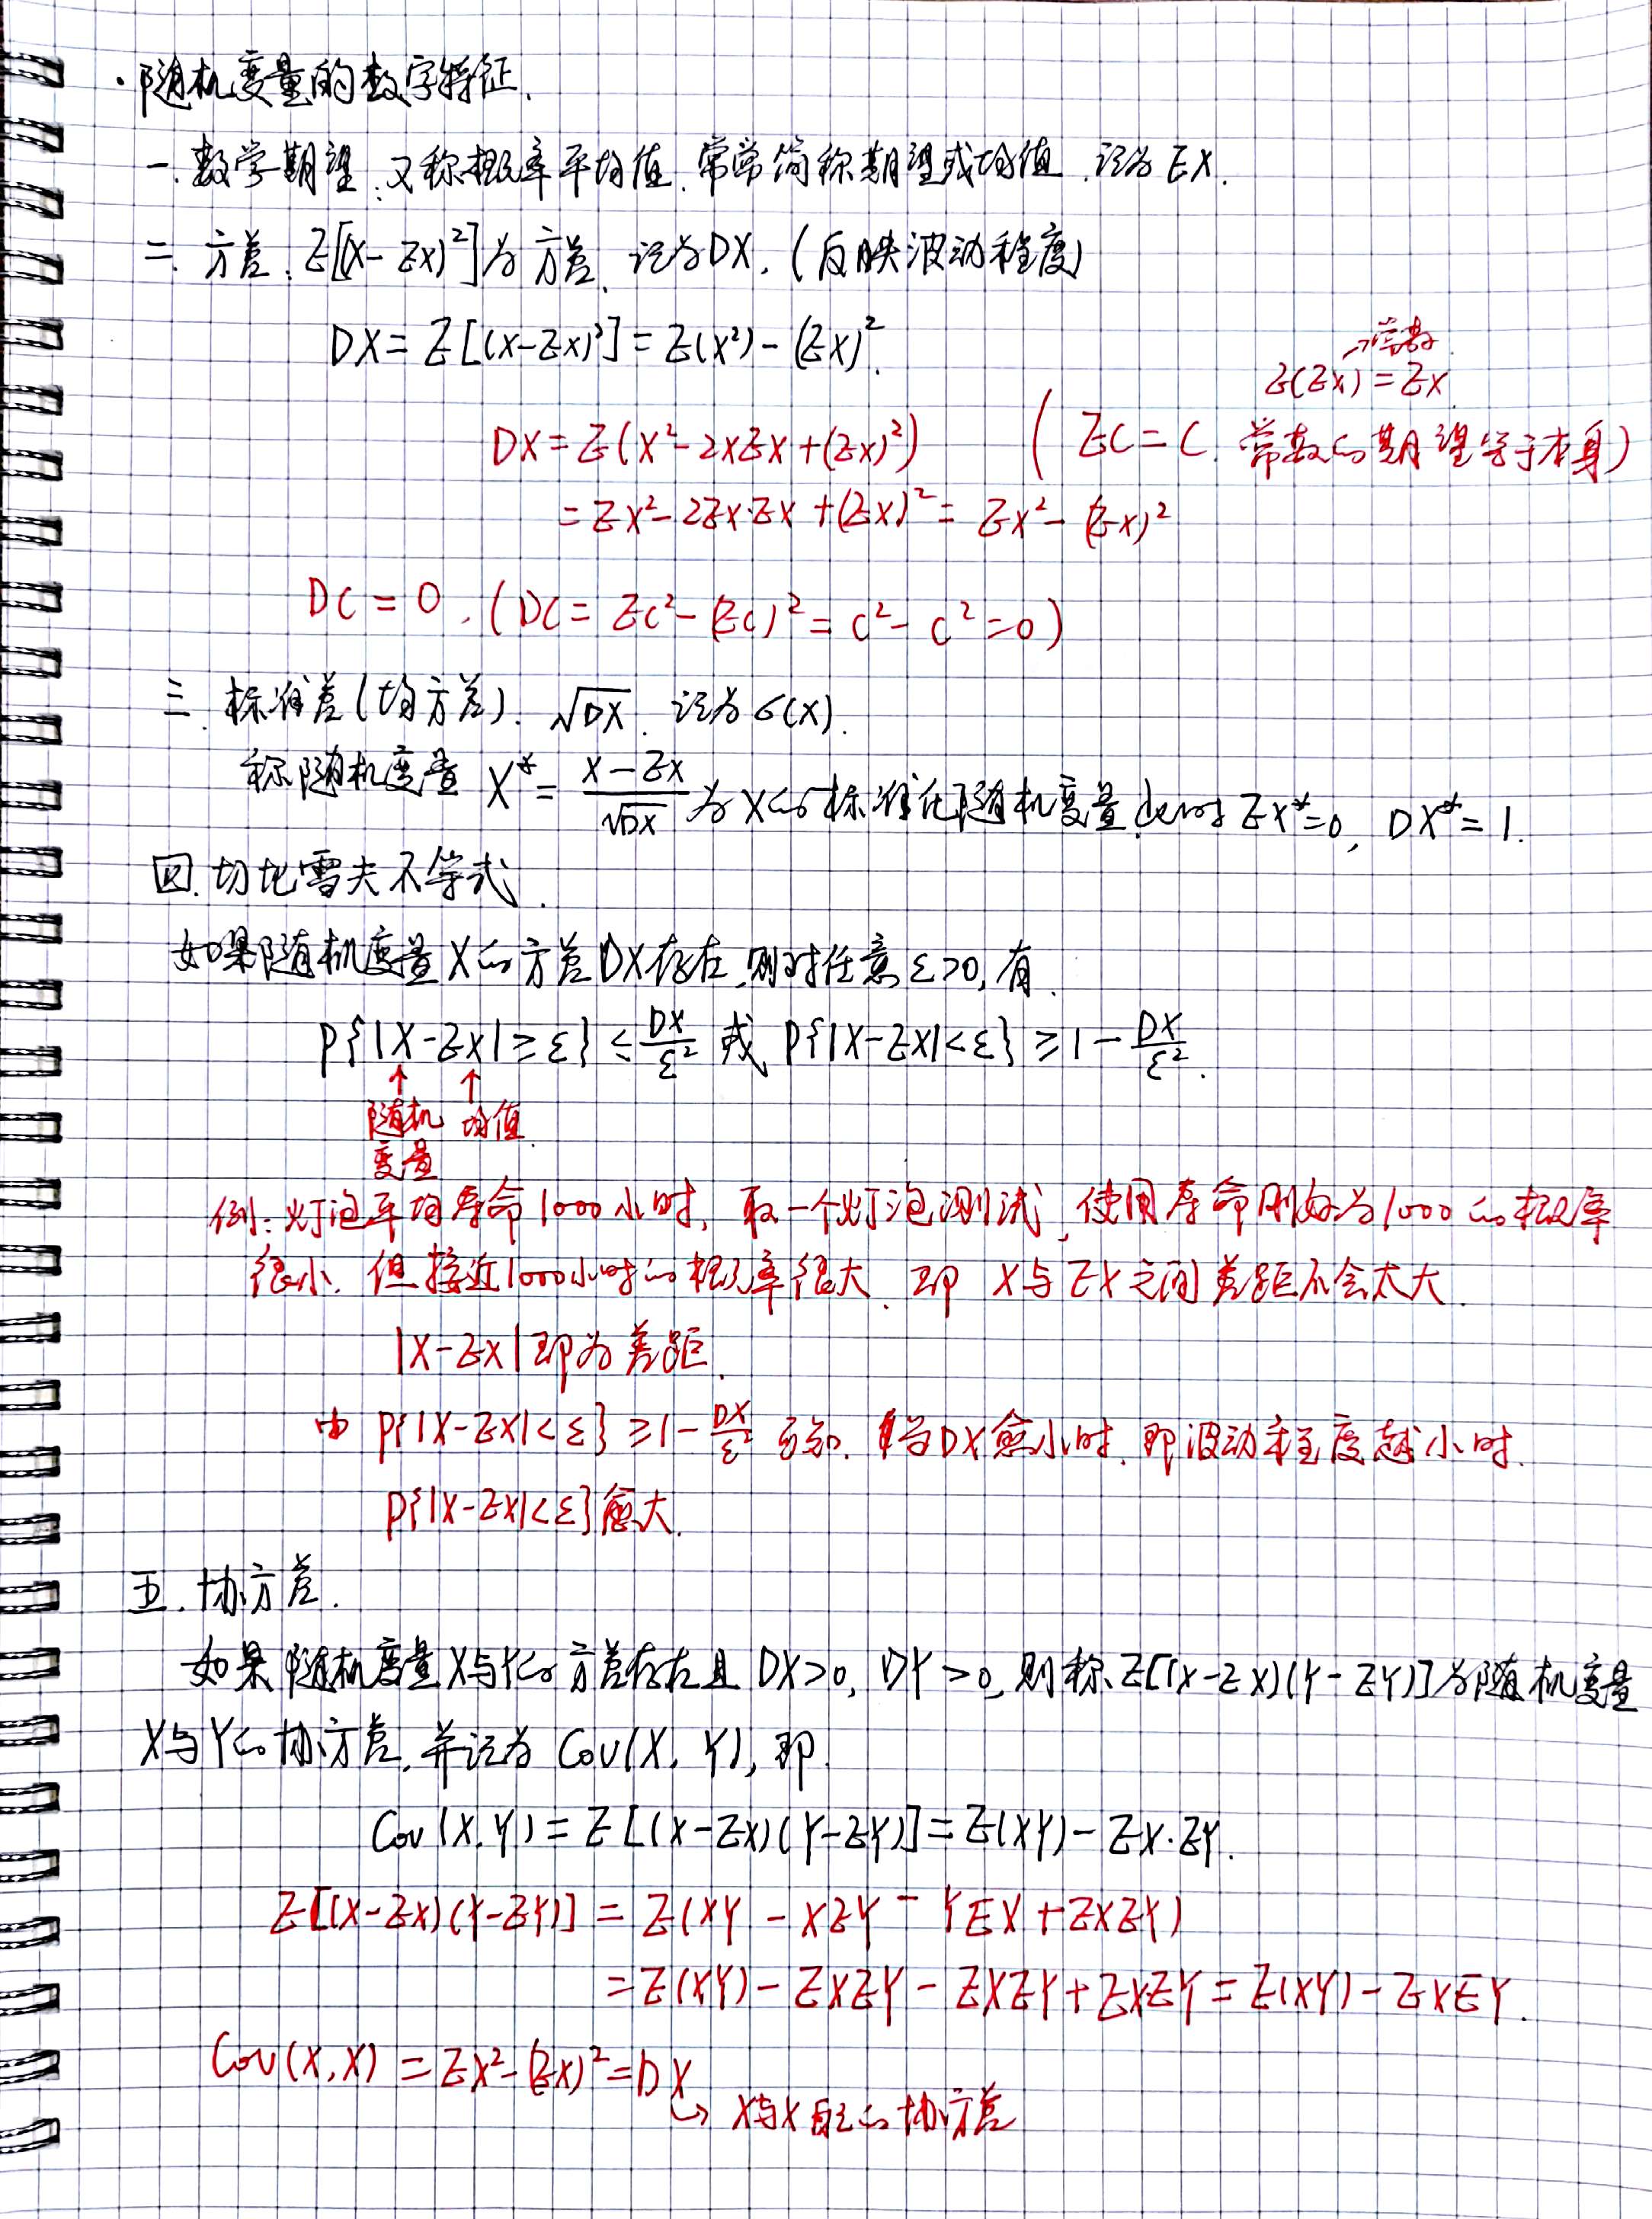 ·随机变量的数字特征.
一.数学期望.又称概率平均值.常常简称期望或均值.记为EX.
二.方差.E[(X-EX)²]为方差.记为DX.(反映波动程度)
DX=E[(X-EX)²]=E(X²)-(EX)².
→常数
E(EX)=EX
DX=E(X²-2XEX+(EX)²) (EC=C.常数的期望等于本身)
=EX²-2EX·EX+(EX)²=EX²-(EX)²
DC=0.(DC=EC²-(EC)²=C²-C²=0)
三.标准差(均方差).√DX.记为σ(X).
称随机变量X*=(X-EX)/√DX为X的标准化随机变量.此时EX*=0,DX*=1.
四.切比雪夫不等式.
如果随机变量X的方差DX存在,则对任意ε>0,有.
P{|X-EX|≥ε}≤DX/ε²或P{|X-EX|<ε}≥1-DX/ε².
↑ ↑
随机 均值.
变量
例:灯泡平均寿命1000小时,取一个灯泡测试,使用寿命刚好为1000的概率
很小.但接近1000小时的概率很大.即X与EX之间差距不会太大.
|X-EX|即为差距.
由P{|X-EX|<ε}≥1-DX/ε²可知.当DX愈小时.即波动程度越小时.
P{|X-EX|<ε}愈大.
五.协方差.
如果随机变量X与Y的方差存在且DX>0,DY>0,则称E[(X-EX)(Y-EY)]为随机变量
X与Y的协方差.并记为Cov(X,Y),即.
Cov(X,Y)=E[(X-EX)(Y-EY)]=E(XY)-EX·EY.
E[(X-EX)(Y-EY)]=E(XY-XEY-YEX+EXEY)
=E(XY)-EXEY-EXEY+EXEY=E(XY)-EXEY.
Cov(X,X)=EX²-(EX)²=DX
↳X与X自己的协方差